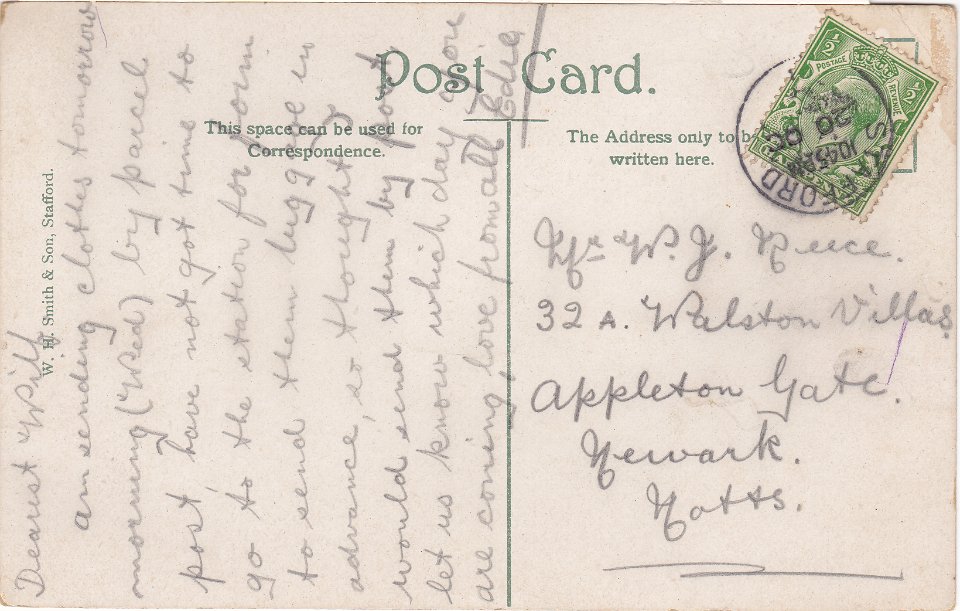 Post Card.
This space can be used for
Correspondence.
The Address only to be
written here.
W. H. Smith & Son, Stafford.
Dearest Wilf
am sending clothes tomorrow
morning (Wed) by parcel
post, have not got time to
go to the station for form
to send them luggage in
advance, so thought I
would send them by post
let us know which day you
are coming, love from all
Edie
Mr W. J. Reece.
32 A. Walston Villas
Appleton Gate.
Newark.
Notts.
½ ½
POSTAGE REVENUE
STAFFORD
10.45
20 OC